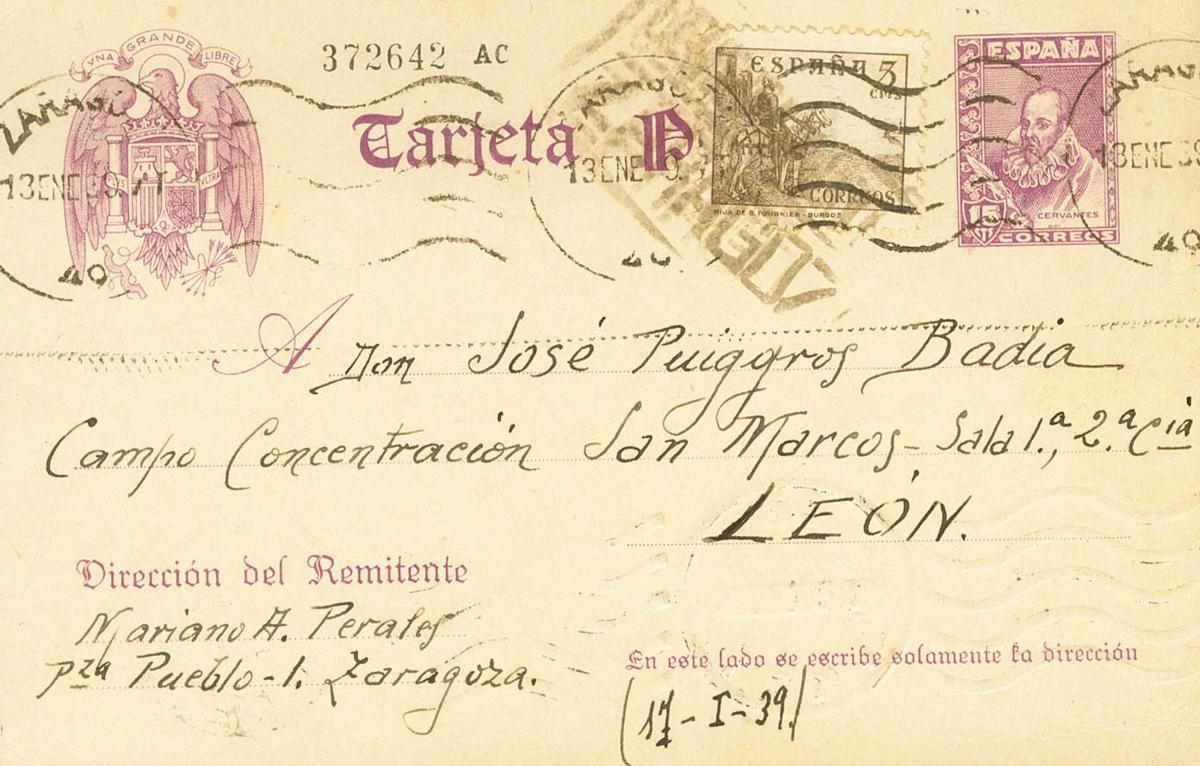 UNA GRANDE LIBRE
372642 AC
Tarjeta P
ESPAÑA 5
CTS
CORREOS
HIJA DE B. FOURNIER - BURGOS
ESPAÑA
15
CTS
CERVANTES
CORREOS
ZARAGO
13 ENE 39
ZARAGO
13 ENE
ZARAG
13 ENE 39
A Don José Puiggros Badia
Campo Concentración San Marcos - Sala 1.ª, 2.ª Cia
LEÓN.
Dirección del Remitente
Mariano A. Perales
pza Pueblo - 1. Zaragoza.
En este lado se escribe solamente la dirección
(17 - I - 39)